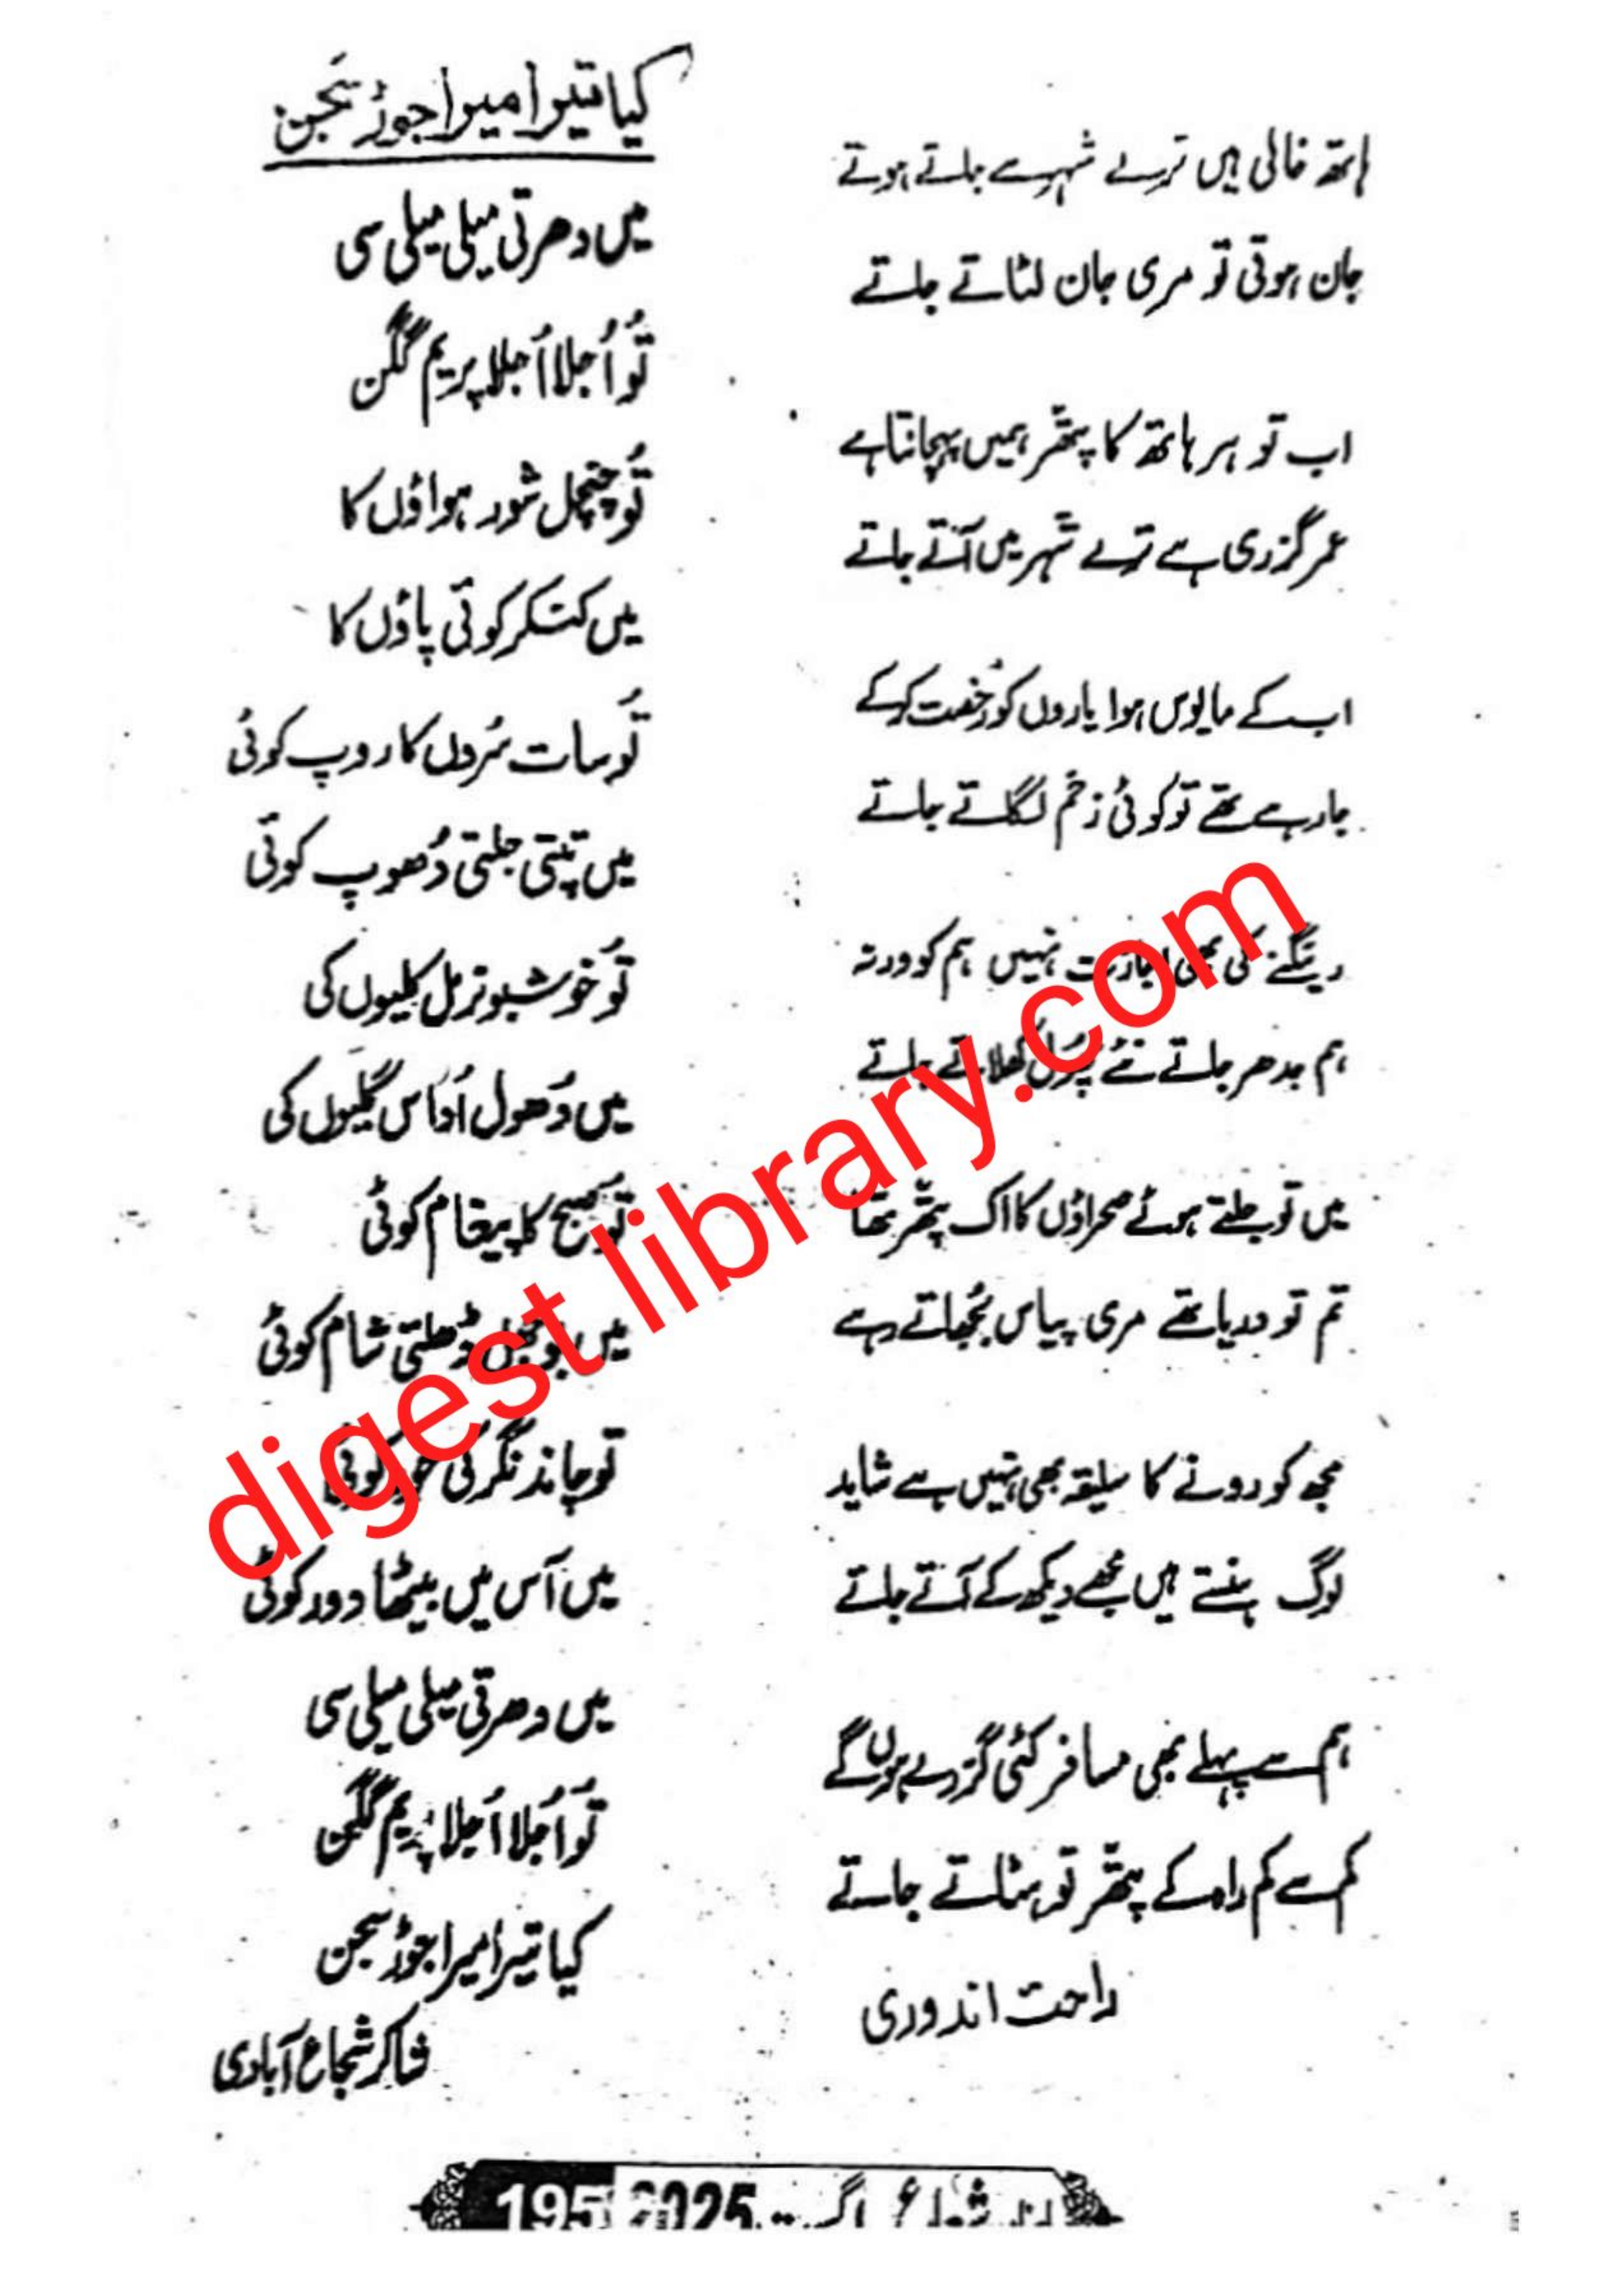 ہاتھ خالی ہیں ترے شہر سے جاتے ہوتے
جان ہوتی تو مری جان لٹاتے جاتے
اب تو ہر ہاتھ کا پتھر ہمیں پہچانتا ہے
عمر گزری ہے ترے شہر میں آتے جاتے
اب کے مایوس ہوا یاروں کو رُخصت کرکے
جارہے تھے تو کوئی زخم لگاتے جاتے
رینگنے کی بھی اجازت نہیں ہم کو ورنہ
ہم جدھر جاتے نئے پھول کھلاتے جاتے
میں تو جلتے ہوئے صحراؤں کا اک پتھر تھا
تم تو دریا تھے مری پیاس بُجھاتے رہے
مجھ کو رونے کا سلیقہ بھی نہیں ہے شاید
لوگ ہنستے ہیں مجھے دیکھ کے آتے جاتے
ہم سے پہلے بھی مسافر کئی گزرے ہوں گے
کم سے کم راہ کے پتھر تو ہٹاتے جاتے
راحت اندوری
کیا تیرا میرا جوڑ سَجن
میں دھرتی میلی میلی سی
تُو اُجلا اُجلا پریم گگن
تُو چنچل شور ہواؤں کا
میں کنکر کوئی پاؤں کا
تُو سات سُروں کا روپ کوئی
میں تپتی جلتی دُھوپ کوئی
تُو خوشبو نرمل کلیوں کی
میں دُھول اُداس گلیوں کی
تُو صبح کا پیغام کوئی
میں بوجھل ڈھلتی شام کوئی
تُو چاند نگر کی حور کوئی
میں آس میں بیٹھا دور کوئی
میں دھرتی میلی میلی سی
تُو اُجلا اُجلا پریم گگن
کیا تیرا میرا جوڑ سجن
شاکر شجاع آبادی
شعاع اگست 2025 195
digest library.com